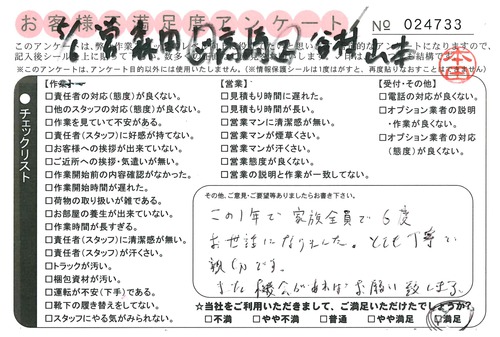 お客様満足度アンケート
№ 024733
チェックリスト
【作業】
□責任者の対応(態度)が良くない。
□他のスタッフの対応(態度)が良くない。
□作業を見ていて不安がある。
□責任者(スタッフ)に好感が持てない。
□お客様への挨拶が出来ていない。
□ご近所への挨拶・気遣いが無い。
□作業開始前の内容確認がなかった。
□作業開始時間が遅れた。
□荷物の取り扱いが雑である。
□お部屋の養生が出来ていない。
□作業時間が長すぎる。
□責任者(スタッフ)に清潔感が無い。
□責任者(スタッフ)が汗くさい。
□トラックが汚い。
□梱包資材が汚い。
□運転が不安(下手)である。
□靴下の履き替えをしていない。
□スタッフにやる気がみられない。
【営業】
□見積もり時間に遅れた。
□見積もり時間が長い。
□営業マンに清潔感が無い。
□営業マンが煙草くさい。
□営業マンが汗くさい。
□営業態度が良くない。
□営業の説明と作業が一致してない。
【受付・その他】
□電話の対応が良くない。
□オプション業者の説明
・作業が良くない。
□オプション業者の対応
(態度)が良くない。
その他、ご意見・ご要望等ありましたらお書き下さい。
この1年で家族全員で6度
お世話になりました。とても丁寧で
親切です。
また機会があればお願い致します。
☆当社をご利用いただきまして、ご満足いただけたでしょうか?
□不満 □やや不満 □普通 □やや満足 □満足